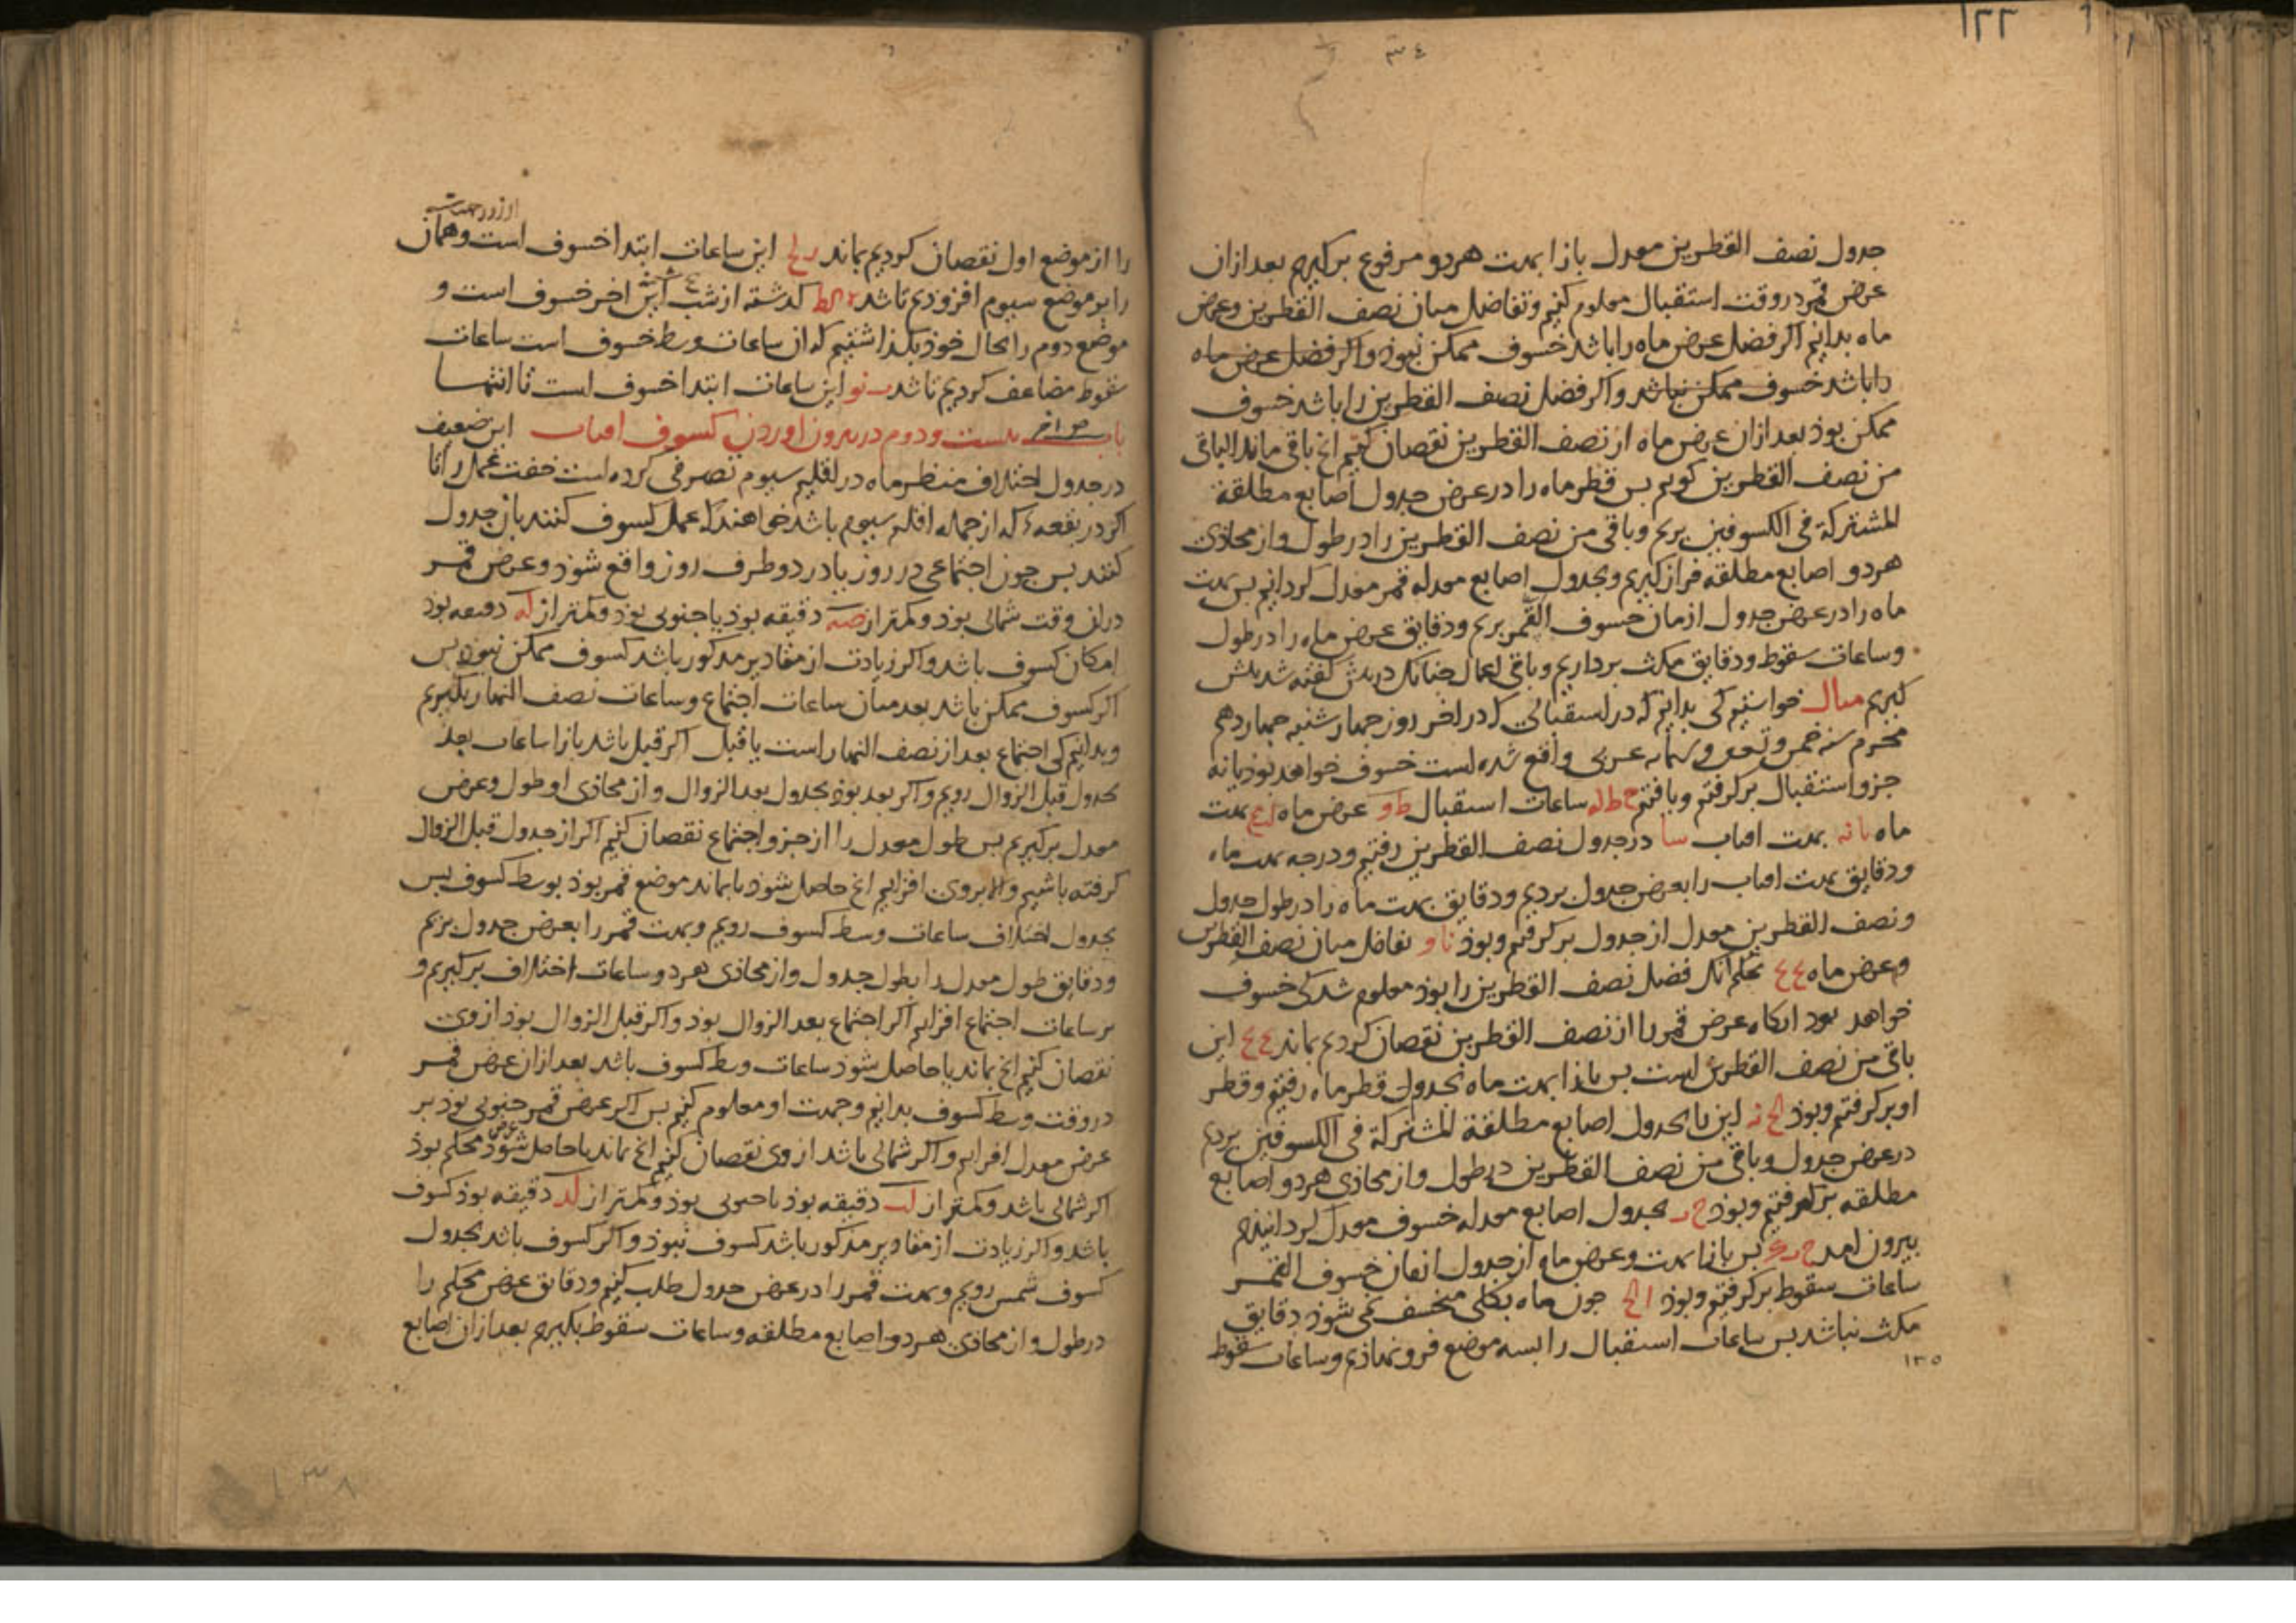 ١٢٢
٣٤
جدول نصف القطرين معدل بازا بهت هر دو مرفوع برکیریم بعد ازان
عرض قمر در وقت استقبال معلوم کنیم و تفاضل میان نصف القطرین و عرض
ماه بدانیم اکر فضل عرض ماه را باشد خسوف ممکن نبوذ و اکر فضل عرض ماه
را باشد خسوف ممکن نباشد و اکر فضل نصف القطرین را باشد خسوف
ممکن بوذ بعد ازان عرض ماه از نصف القطرین نقصان کنیم انج باقی ماند الباقی
من نصف القطرین کویم بس قطر ماه را در عرض جدول اصابع مطلقة
المشترکة فی الکسوفین بریم و باقی من نصف القطرین را در طول و از محاذی
هر دو اصابع مطلقه فراز کیریم و بجدول اصابع معدله قمر معدل کردانیم بس بهت
ماه را در عرض جدول ازمان خسوف القمر بریم و دقایق عرض ماه را در طول
و ساعات سقوط و دقایق مکث برداریم و باقی اعمال جنانک در بیش کفته شد بیش
کیریم مثال خواستیم کی بدانیم که در استقبالی که در اخر روز جهارشنبه جهاردهم
محرم سنه خمس و تسعین و ستمایه عربی واقع شده است خسوف خواهد بوذ یا نه
جزو استقبال برکرفتیم و یافتیم ح ط له ساعات استقبال ط و عرض ماه بهت
ماه یا نه بهت افتاب سا در جدول نصف القطرین رفتیم و درجه بهت ماه
و دقایق بهت افتاب را بعرض جدول بردیم و دقایق بهت ماه را در طول جدول
و نصف القطرین معدل از جدول برکرفتیم و بوذ نا و تفاضل میان نصف القطرین
و عرض ماه ٤٤ بحکم انک فضل نصف القطرین را بوذ معلوم شد کی خسوف
خواهد بود انکاه عرض قمر را از نصف القطرین نقصان کردیم بماند این
باقی من نصف القطرین است بس بازا بهت ماه بجدول قطر ماه رفتیم و قطر
او برکرفتیم و بوذ لح نه این با بجدول اصابع مطلقة المشترکة فی الکسوفین بردیم
در عرض جدول و باقی من نصف القطرین در طول و از محاذی هر دو اصابع
مطلقه برکرفتیم و بوذ بجدول اصابع معدله خسوف معدل کردانیدیم
بیرون امد بس بازا بهت و عرض ماه از جدول ازمان خسوف القمر
ساعات سقوط برکرفتیم و بوذ ا لح جون ماه بکلی منخسف نمی شوذ دقایق
مکث نباشد بس ساعات استقبال را بسه موضع فرو نهاذیم و ساعات سقوط
١٣٥
را از موضع اول نقصان کردیم بماند این ساعات ابتدا خسوف است و همان
را بر موضع سیوم افزوذیم تا شد کذشته از شب این اخر خسوف است و
موضع دوم را بحال خوذ بکذاشتیم که ان ساعات وسط خسوف است ساعات
سقوط مضاعف کردیم تا شد ب نو این ساعات ابتدا خسوف است تا انتها
باب بیست و دوم در بیرون اوردن کسوف افتاب این ضعیف
در جدول اختلاف منظر ماه در اقلیم سیوم تصرفی کرده است خفت عمل را تا
اکر در بقعهء که از جمله اقلیم سیوم باشد خواهند که عمل کسوف کنند بان جدول
کنند بس جون اجتماعی در روز یا در دو طرف روز واقع شوذ و عرض قمر
دران وقت شمالی بوذ و کمتر از صه دقیقه بوذ یا جنوبی بوذ و کمتر از له دقیقه بوذ
امکان کسوف باشد و اکر زیادت از مقادیر مذکور باشد کسوف ممکن نبوذ بس
اکر کسوف ممکن باشد بعد میان ساعات اجتماع و ساعات نصف النهار بکیریم
و بدانیم کی اجتماع بعد از نصف النهار است یا قبل اکر قبل باشد بازا ساعات بعد
بجدول قبل الزوال رویم و اکر بعد بوذ بجدول بعد الزوال و از محاذی او طول و عرض
معدل برکیریم بس طول معدل را از جزو اجتماع نقصان کنیم اکر از جدول قبل الزوال
کرفته باشیم و الا بر وی افزاییم انج حاصل شوذ یا بماند موضع قمر بوذ بوسط کسوف بس
بجدول اختلاف ساعات وسط کسوف رویم و بهت قمر را بعرض جدول بریم
و دقایق طول معدل را بطول جدول و از محاذی هر دو ساعات اختلاف برکیریم و
بر ساعات اجتماع افزاییم اکر اجتماع بعد الزوال بوذ و اکر قبل الزوال بوذ از وی
نقصان کنیم انج بماند یا حاصل شوذ ساعات وسط کسوف باشد بعد ازان عرض قمر
در وقت وسط کسوف بدانیم و جهت او معلوم کنیم بس اکر عرض قمر جنوبی بوذ بر
عرض معدل افزاییم و اکر شمالی باشد از وی نقصان کنیم انج بماند یا حاصل شوذ عرض محکم بوذ
اکر شمالی باشد و کمتر از لد دقیقه بوذ یا جنوبی بوذ و کمتر از لد دقیقه بوذ کسوف
باشد و اکر زیادت از مقادیر مذکور باشد کسوف نبوذ و اکر کسوف باشد بجدول
کسوف شمس رویم و بهت قمر را در عرض جدول طلب کنیم و دقایق عرض محکم را
در طول و از محاذی هر دو اصابع مطلقه و ساعات سقوط بکیریم بعد ازان اصابع
١٣٨